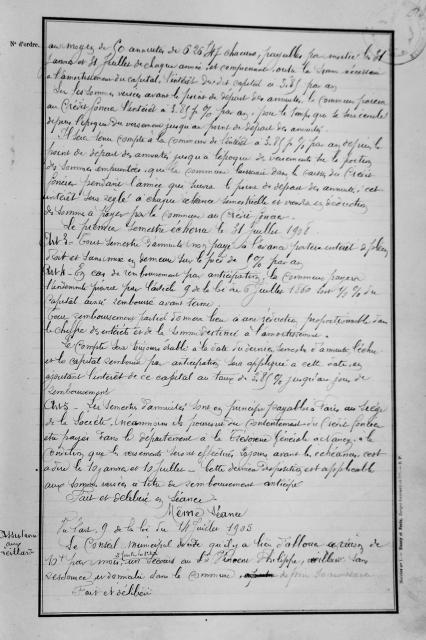 N° d'ordre.
au moyen de 50 annuités de 626 chacune, payables par moitié le 31
Janvier et 31 Juillet de chaque année et comprenant outre la somme nécessaire
à l'amortissement du capital, l'intérêt dudit capital à 3.85 % par an
Sur les sommes versées avant le point de départ des annuités, la Commune paiera
au Crédit foncier l'intérêt à 3.85 % par an pour le temps qui sera écoulé
depuis l'époque du versement jusqu'au point de départ des annuités
Il sera tenu compte à la Commune de l'intérêt à 3.85 % par an depuis le
point de départ des annuités jusqu'à l'époque du versement sur la portion
des sommes empruntées que la commune laisserait dans la caisse du Crédit
foncier pendant l'année qui suivra le point de départ des annuités; cet
intérêt sera réglé à chaque échéance semestrielle et viendra en déduction
des sommes à payer par la Commune au Crédit foncier.
Le premier semestre écherra le 31 juillet 1908
Art 3 - Tout semestre d'annuité non payé à l'échéance portera intérêt de plein
droit et sans mise en demeure sur le pied de 5 % par an
Art 4 - En cas de remboursement par anticipation, la Commune payera
l'indemnité prévue par l'article 9 de la loi du 6 Juillet 1860 soit ½ % du
capital ainsi remboursé avant terme.
Tout remboursement partiel donnera lieu à une réduction proportionnelle dans
le chiffre des intérêts et de la somme destinée à l'amortissement.
Le Compte sera toujours établi à la date du dernier semestre d'annuité échu
et le capital remboursé par anticipation sera appliqué à cette date, en
ajoutant l'intérêt de ce capital au taux de 3.85 % jusqu'au jour du
remboursement
Art 5 - Les semestres d'annuités sont en principe payables à Paris au Siège
de la Société. Néanmoins ils pourront du consentement du Crédit foncier
être payés dans le département à la Trésorerie Générale, à la
condition que les versements seront effectués 20 jours avant les échéances, c'est
à dire le 10 janvier et 10 Juillet - Cette dernière disposition est applicable
aux sommes versées à titre de remboursement anticipé
Fait et délibéré en Séance
Même Séance
Assistance
aux
vieillards
Vu l'art. 9 de la loi du 14 Juillet 1905
Le Conseil municipal décide qu'il y a lieu d'allouer à raison de
10 f par mois, un secours au Sr Philippe, vieillard sans
ressources et domicilié dans la Commune
Fait et délibéré